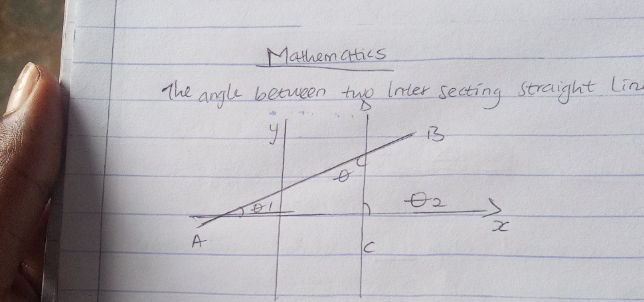 Mathematics
The angle between two Inter secting straight
D
y
B
θ
θ1
θ2
x
A
C